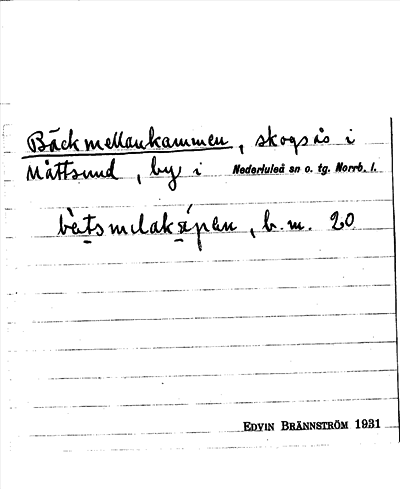 Bäckmellankammen, skogsås i
Måttsund, by i Nederluleå sn o. tg. Norrb. l.
b.m. 20
EDVIN BRÄNNSTRÖM 1931